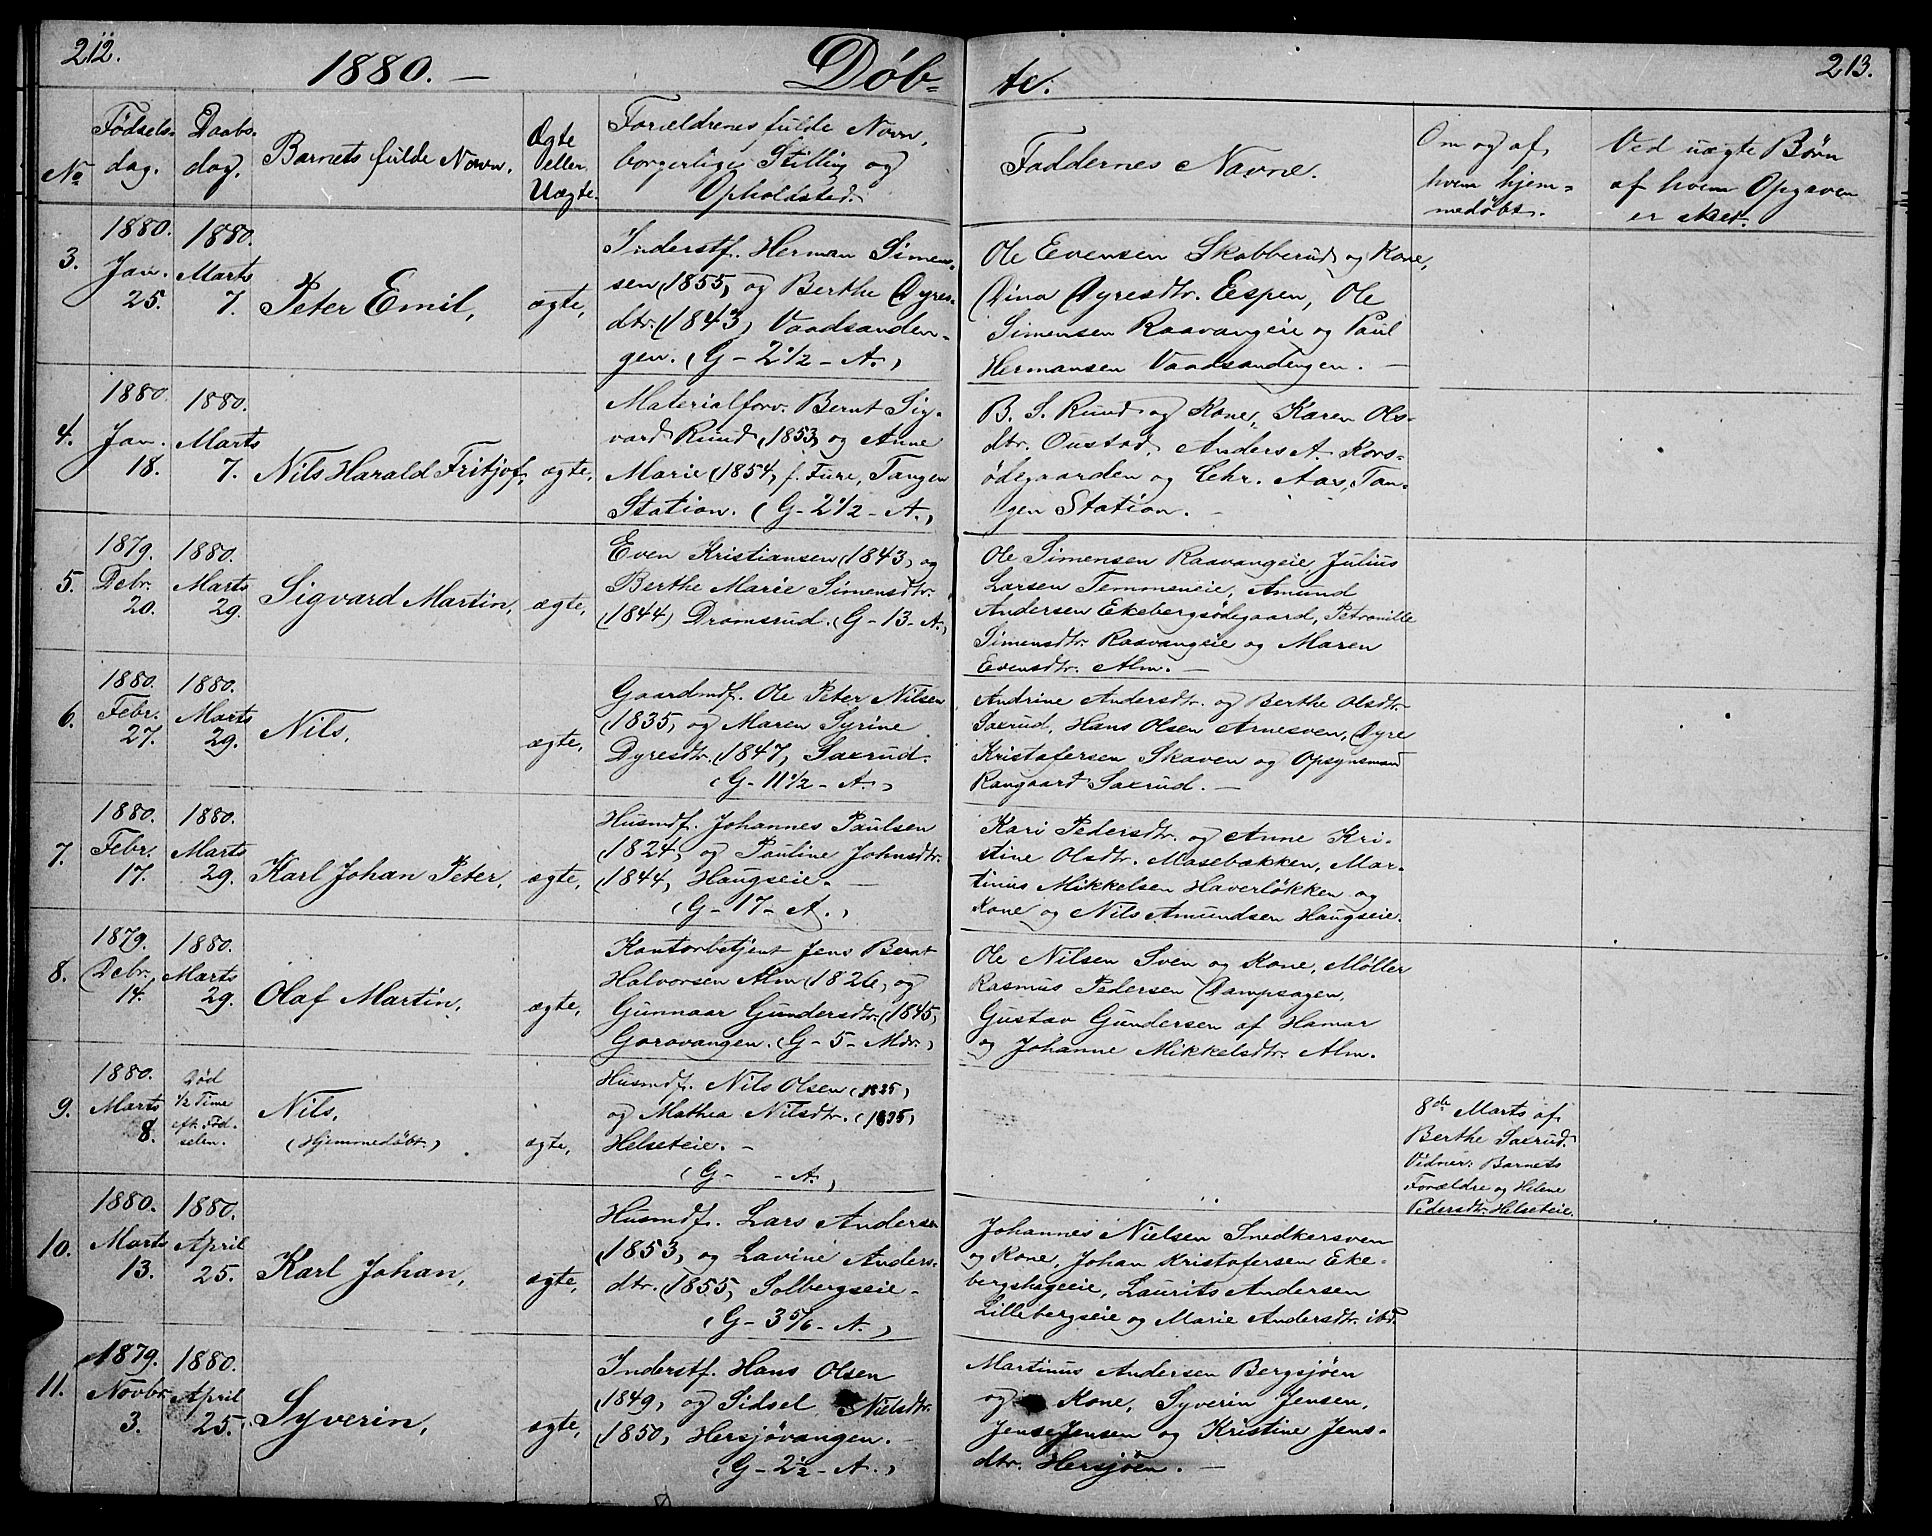 212.
1880. —
Døb-
te.
213.
No
Fødsels-
dag.
Daabs-
dag.
Barnets fulde Navn.
Ægte
eller
Uægte.
Forældrenes fulde Navn,
borgerlige Stilling og
Opholdsted.
Faddernes Navne.
Om og af
hvem hjem-
medøbt.
Ved uægte Børn
af hvem Opgaven
er skeet.
3.
1880.
Jan.
25.
1880.
Marts
7.
Peter Emil,
ægte,
Inderstf. Herman Simen-
sen (1855) og Berthe Dyres-
dtr. (1843) Vaadsanden-
gen. (G - 2 1/2 - A.)
Ole Evensen Skobberud og Kone,
Dina Dyresdtr. Espen, Ole
Simensen Raavangeie og Paul
Hermansen Vaadsandengen. —
4.
1880.
Jan.
18.
1880.
Marts
7.
Nils Harald Fritjof,
ægte,
Materialforv. Bernt Sig-
vard Ruud (1853) og Anne
Marie (1854) f. Fure, Tangen
Station. (G - 2 1/2 - A.)
B. S. Ruud og Kone, Karen Ols-
dtr. Oustad, Anders A. Kors-
ødegaarden og Chr. Aas, Tan-
gen Station. —
5.
1879.
Debr.
20.
1880.
Marts
29.
Sigvard Martin,
ægte,
Even Kristiansen (1843) og
Berthe Marie Simensdtr.
(1844) Dromsrud. (G - 13 - A.)
Ole Simensen Raavangeie, Julius
Larsen Temmeneie, Amund
Andersen Ekebergsødegaard, Petronille
Simensdtr. Raavangeie og Maren
Evensdtr. Alm. —
6.
1880.
Febr.
27.
1880.
Marts
29.
Nils,
ægte,
Gaardmdf. Ole Peter Nilsen
(1835) og Maren Syrine
Dyresdtr. (1847) Saxrud.
(G - 11 1/2 - A.)
Andrine Andersdtr. og Berthe Olsdtr.
Saxrud, Hans Olsen Arnesven, Dyre
Kristofersen Skaven og Opsynsmand
Rangaard Saxrud. —
7.
1880.
Febr.
17.
1880.
Marts
29.
Karl Johan Peter,
ægte,
Husmdf. Johannes Paulsen
(1824) og Pauline Johnsdtr.
(1844) Haugseie. —
(G - 17 - A.)
Kari Pedersdtr. og Anne Kri-
stine Olsdtr. Masebakken, Mar-
tinus Mikkelsen Haverløkken og
Kone og Nils Amundsen Haugseie.
8.
1879.
Debr.
14.
1880.
Marts
29.
Olaf Martin,
ægte,
Kontorbetjent Jens Bernt
Halvorsen Alm (1826) og
Gunnaar Gundersdtr. (1845)
Gorovangen. (G - 5 - Mdr.)
Ole Nilsen Sven og Kone, Møller
Rasmus Pedersen Dampsagen,
Gustav Gundersen af Hamar
og Johanne Mikkelsdtr. Alm.
9.
1880.
Marts
8.
død
1/2 Time
eft. Fød-
selen.
Nils,
(Hjemmedøbt.)
ægte,
Husmdf. Nils Olsen (1835)
og Mathea Nilsdtr. (1835)
Helseteie. —
(G - - A.)
8de Marts af
Berthe Saxrud.
Vidner: Barnets
Forældre og Helene
Pedersdtr. Helseteie.
10.
1880.
Marts
13.
1880.
April
25.
Karl Johan,
ægte,
Husmdf. Lars Andersen
(1853) og Lavine Anders-
dtr. (1855) Solbergseie -
(G - 3 5/6 - A.)
Johannes Nielsen Snedkersven
og Kone, Johan Kristofersen Eke-
bergshageeie, Laurits Andersen
Lillebergseie og Marie Andersdtr. ibd.
11.
1879.
Novbr.
3.
1880.
April
25.
Syverin,
ægte,
Inderstf. Hans Olsen
(1849) og Sidsel Nielsdtr.
(1850) Hersjøvangen. —
(G - 2 1/2 - A.)
Martinus Andersen Bergsjøen
og Kone, Syverin Jensen,
Jens Jensen og Kristine Jens-
dtr. Hersjøen. —